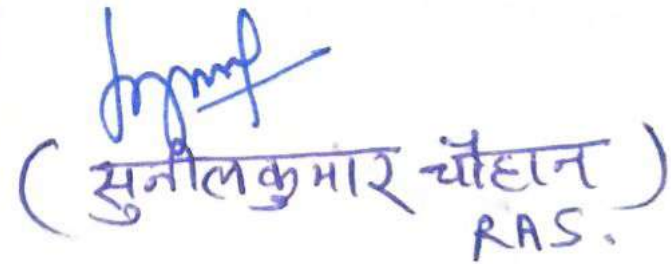 ( सुनीलकुमार चौहान )
RAS.